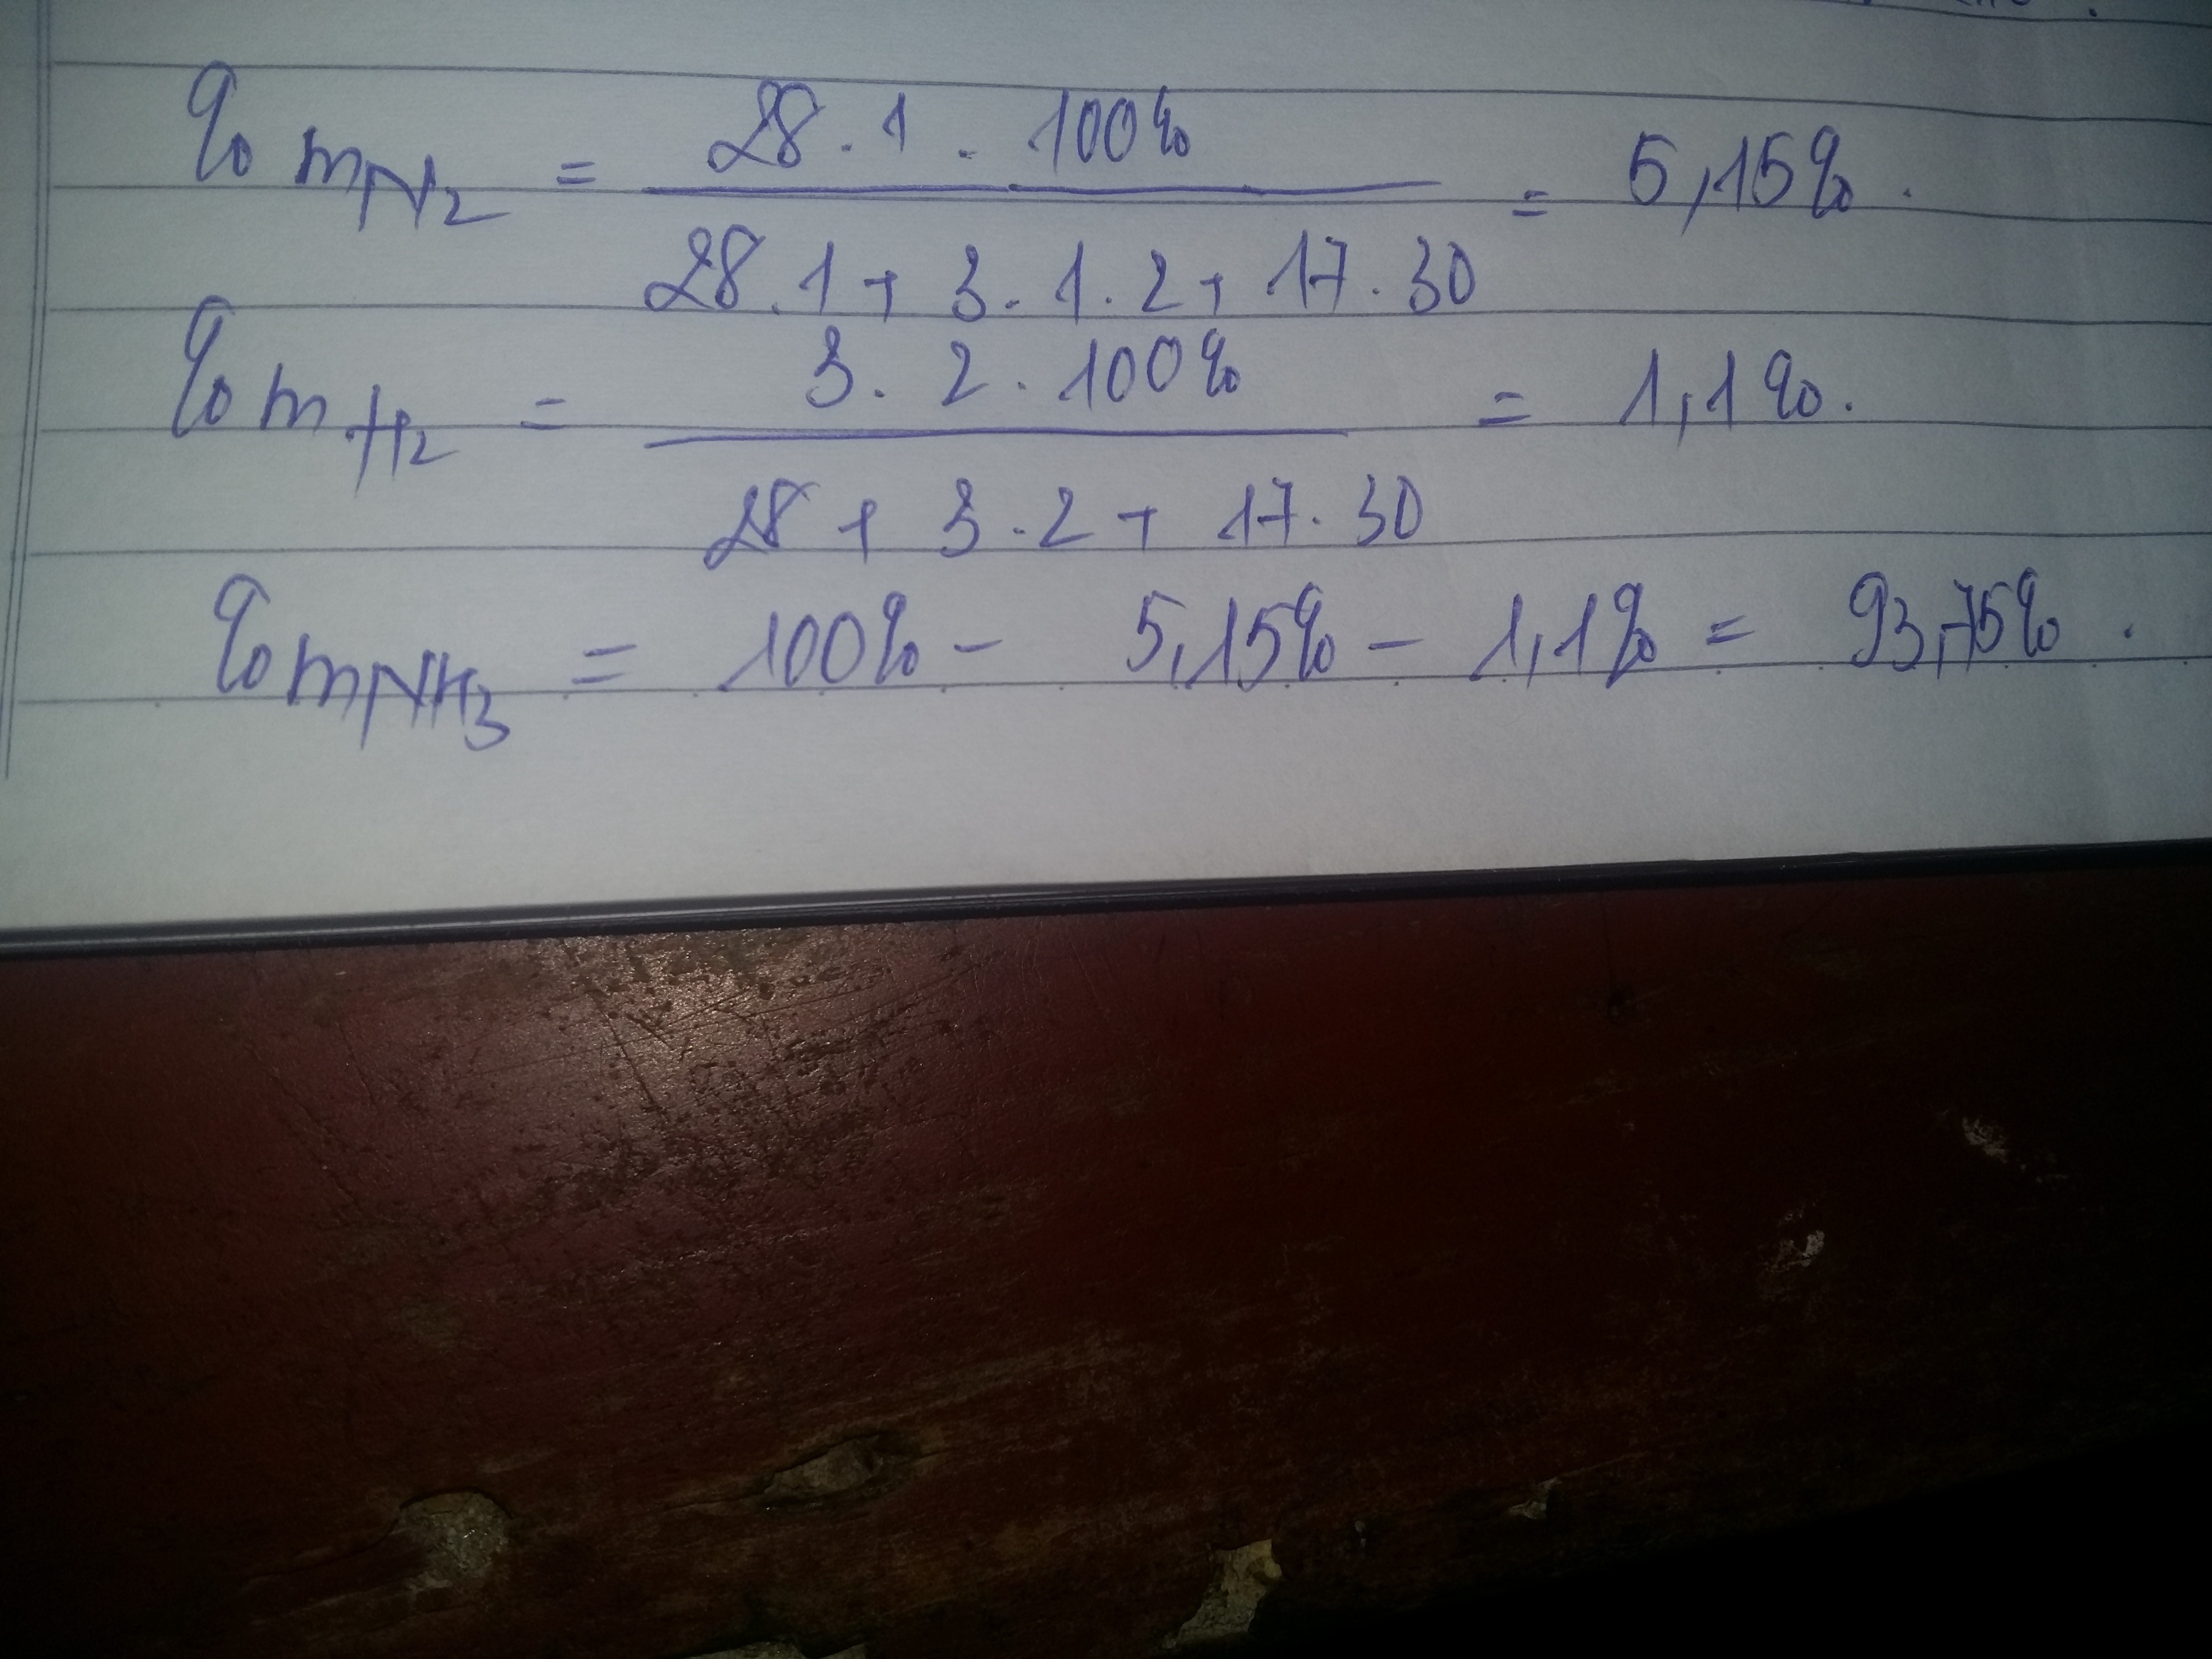 %mN₂ = 28.1.100% / 28.1 + 3.1.2 + 17.30 = 5,15%.
%mH₂ = 3.2.100% / 28 + 3.2 + 17.30 = 1,1%.
%mNH₃ = 100% - 5,15% - 1,1% = 93,75%.